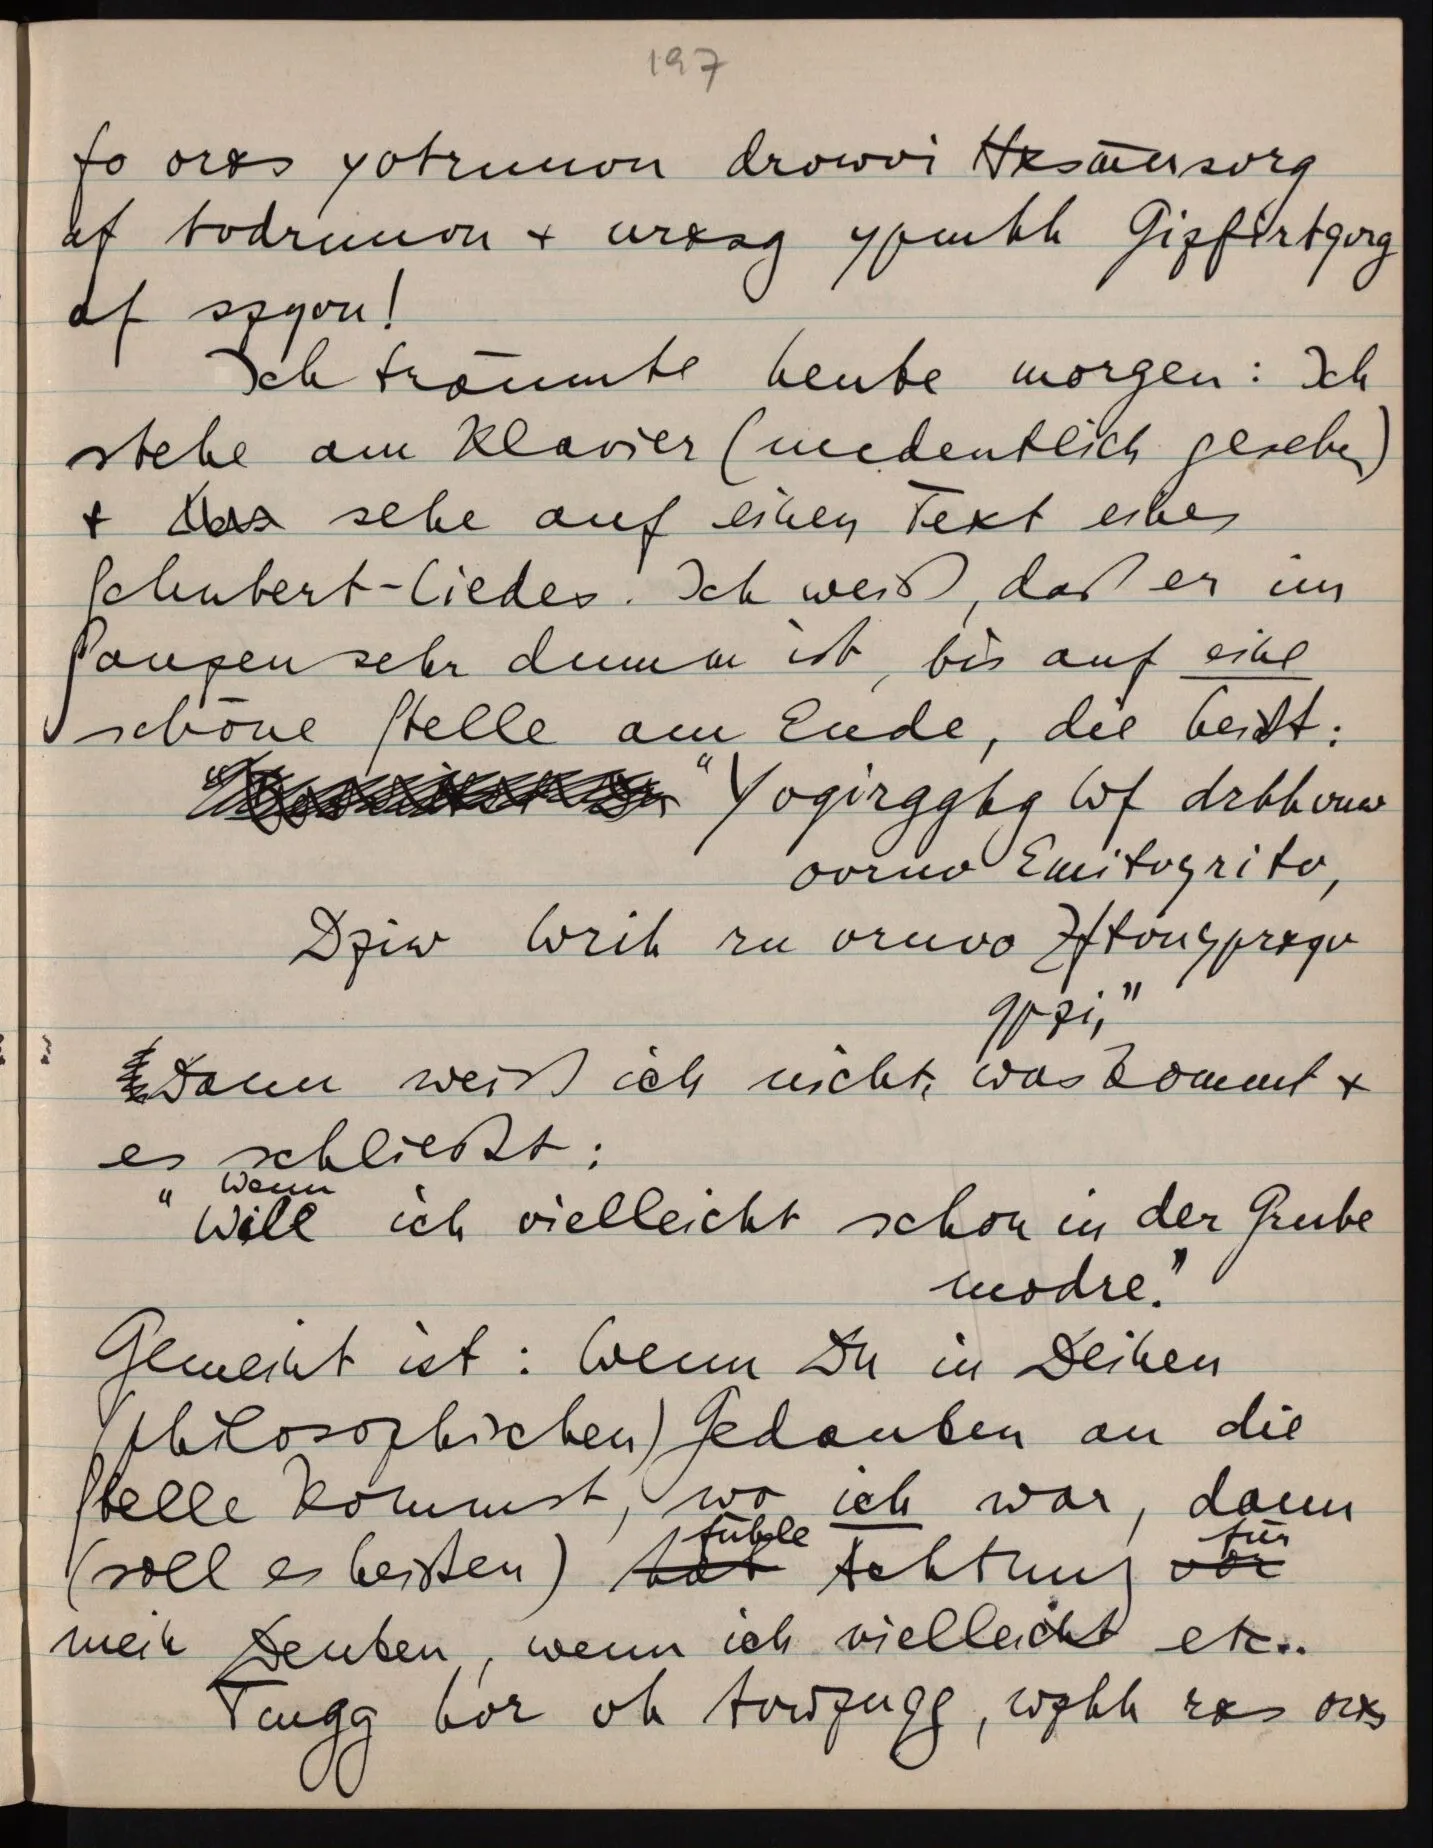 197
fo orxs yvtrnnvn drvwvi Hxsm̈nsvrg
af tvdrnnvn + nrxsg ypmhh Gizfirtqvrg
af szyvn!
Ich träumte heute morgen: Ich
stehe am Klavier (undeutlich gesehen)
+ sehe auf einen Text eines
Schubert-Liedes. Ich weiß, daß er im
Ganzen sehr dumm ist, bis auf eine
schöne Stelle am Ende, die heißt:
"Yvgirgghg Wf drhhvnw
ovrnv Emitvyritv,
Dziw Wrih rn vrnvo Zftvnyprxqv
qpzi,"
Dann weiß ich nicht, was kommt +
es schließt:
wenn
"Will ich vielleicht schon in der Grube
modre."
Gemeint ist: Wenn Du in Deinen
(philosophischen) Gedanken an die
Stelle kommst, wo ich war, dann
fühle für
(soll es heißen) hat Achtung vor
mein Denken, wenn ich vielleicht etc..
Tmgg hvr vh tvwznqg, dzhh rxs orxs